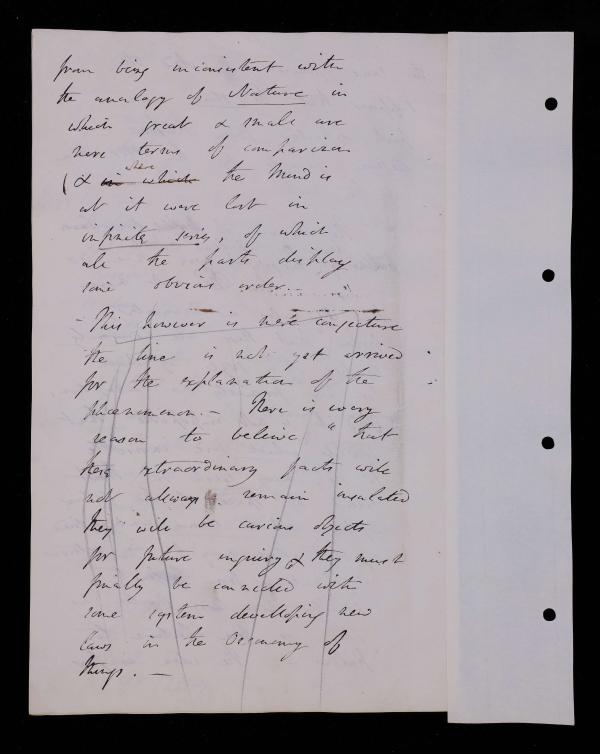 from being inconsistent with
the analogy of Nature in
which great & small are
mere terms of comparison
(& in which where the Mind is
as it were lost in
infinite series, of which
all the parts display
some obvious order. -
- This however is mere conjecture
the time is not yet arrived
for the explanation of the
phænomenon. - There is every
reason to believe "that
these extraordinary facts will
not always remain insulated
they will be curious objects
for future inquiry & they must
finally be connected with
some system developing new
laws in the Œconomy of
things. -